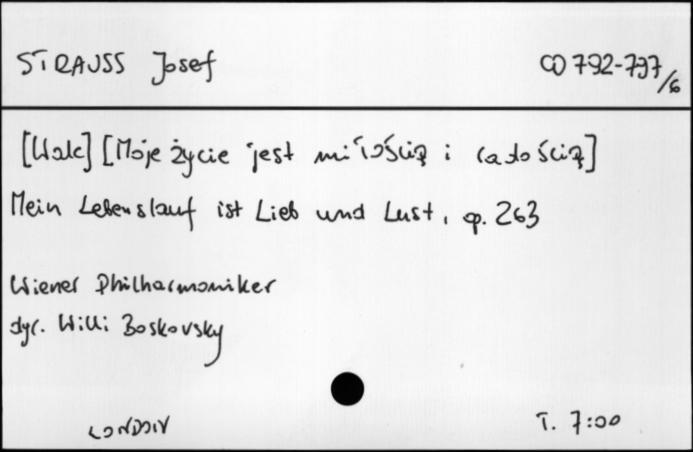 STRAUSS Josef CD 792-797/6
[Walc] [Moje życie jest miłością i radością]
Mein Lebenslauf ist Lieb und Lust, op. 263
Wiener Philharmoniker
dyr. Willi Boskovsky
LONDON T. 7:00